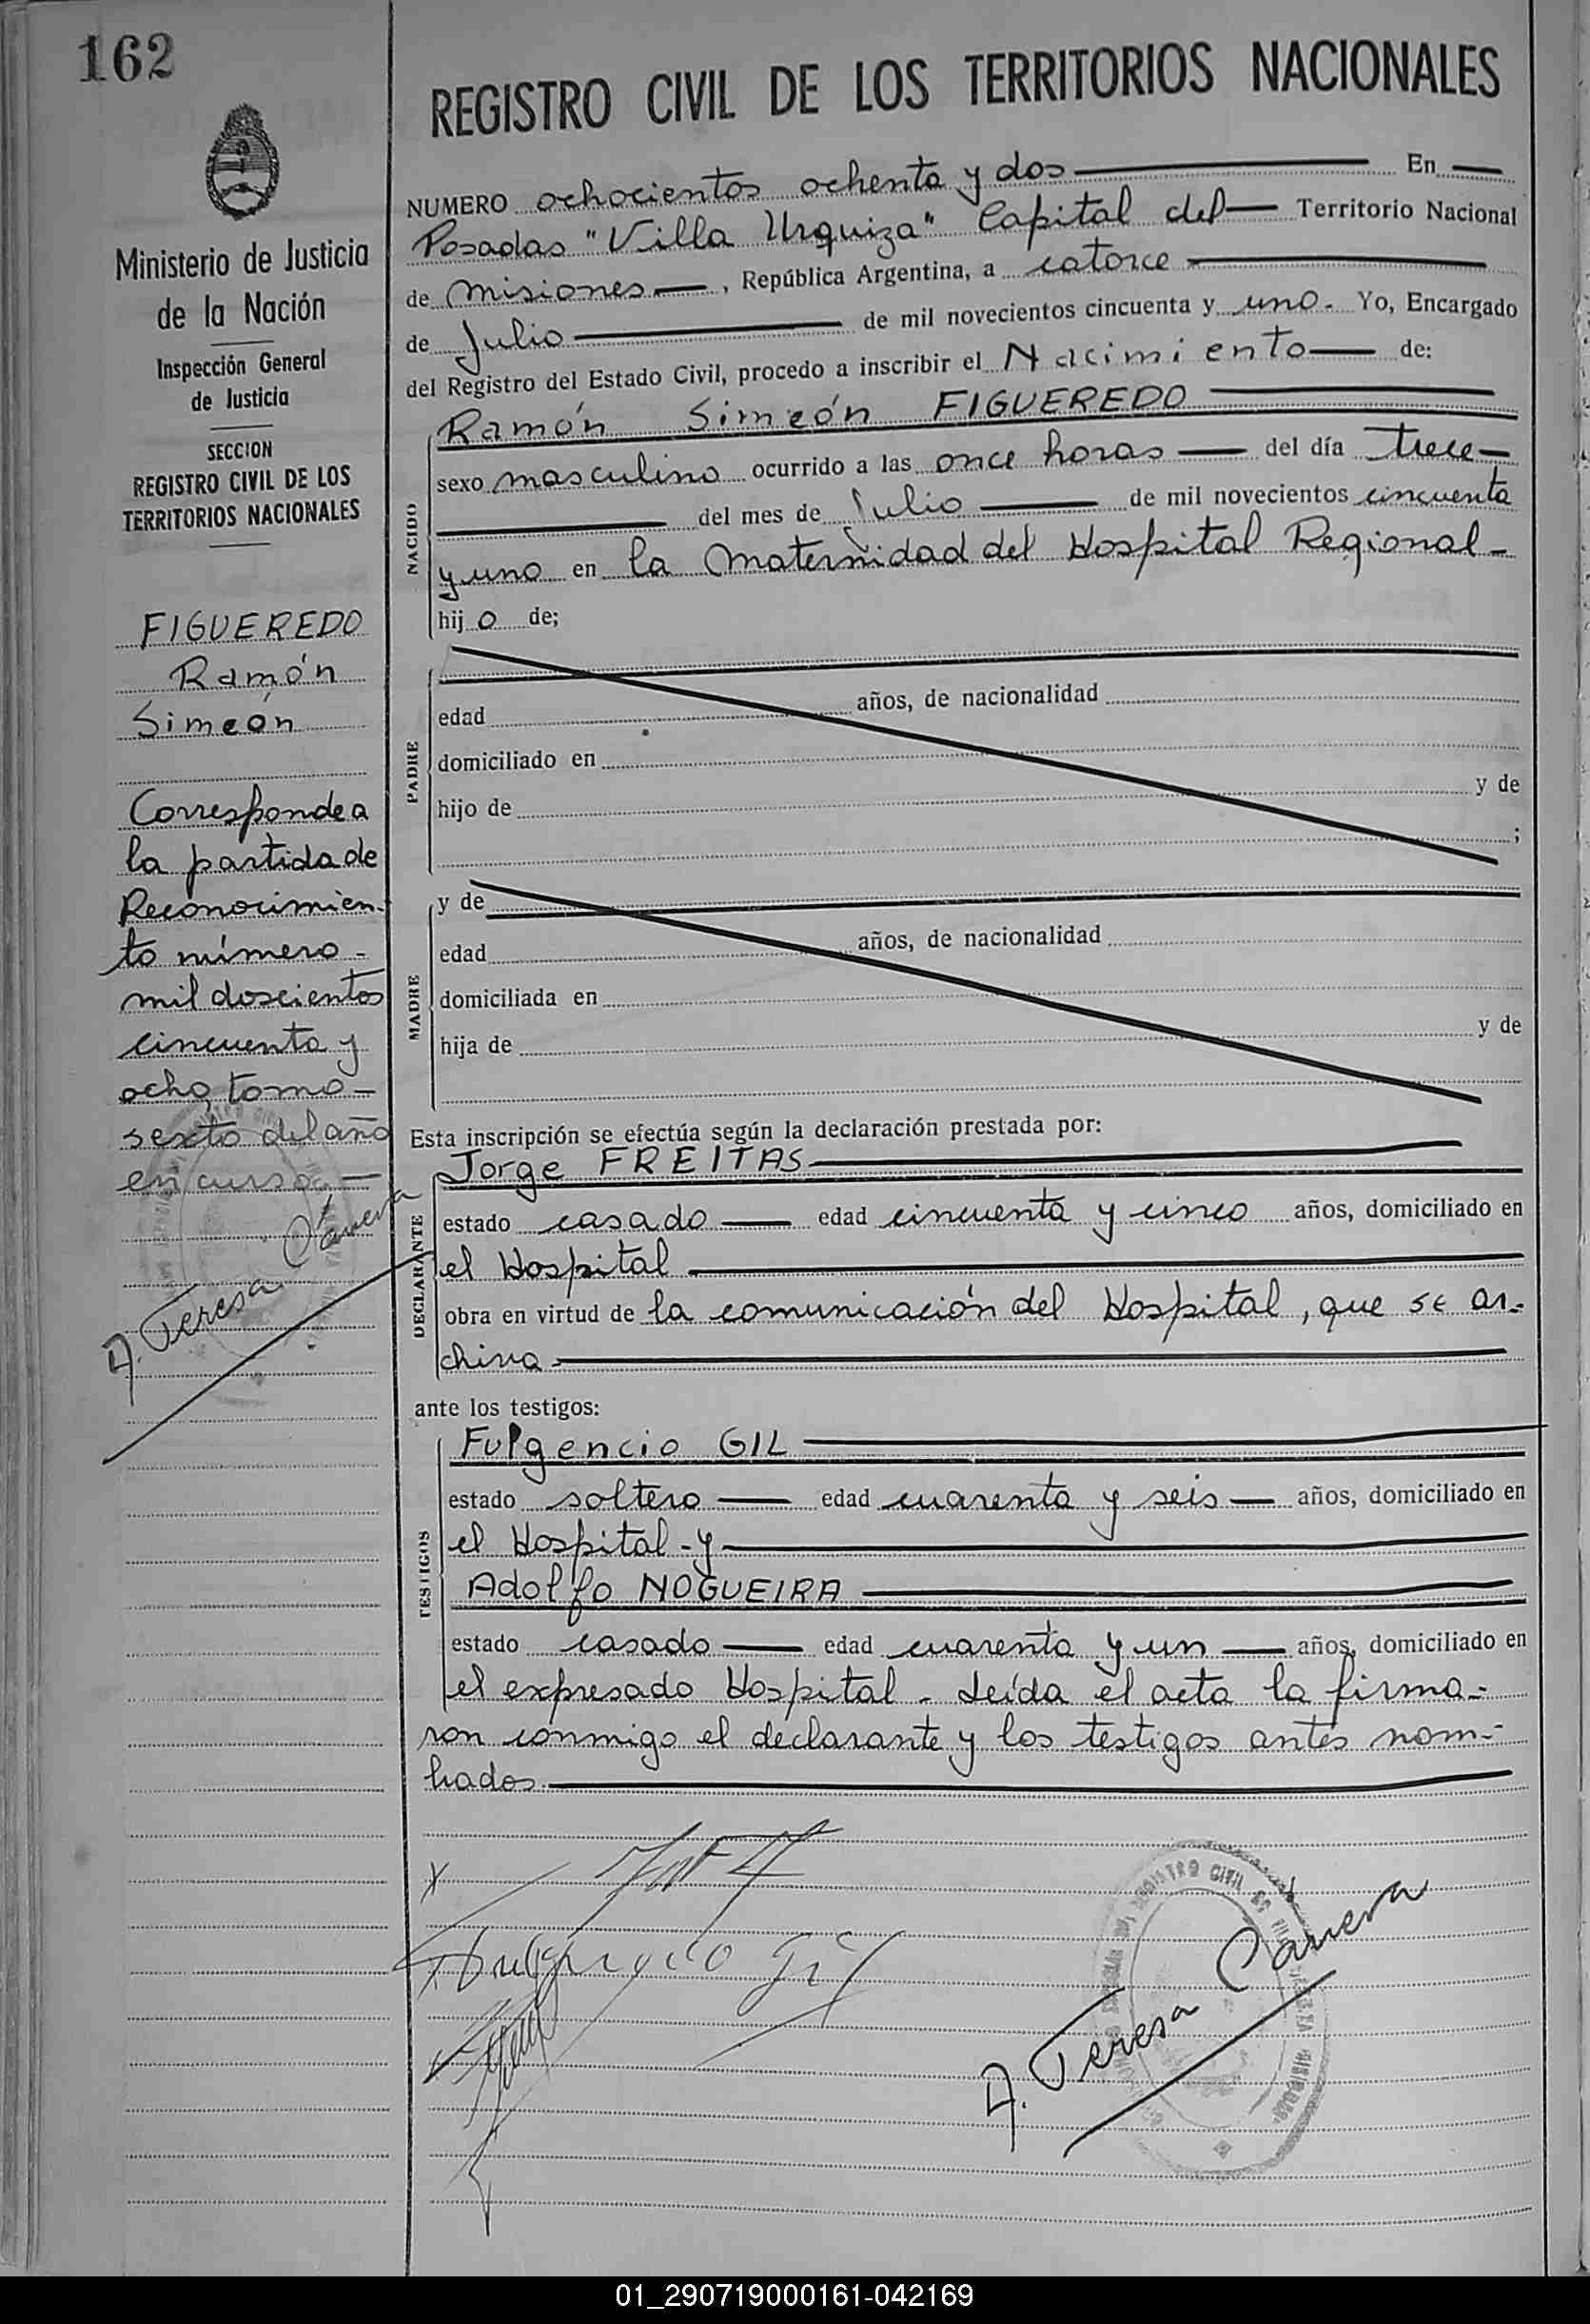 162
Ministerio de Justicia
de la Nación
Inspección General
de Justicia
SECCION
REGISTRO CIVIL DE LOS
TERRITORIOS NACIONALES
FIGUEREDO
Ramón
Simeón
Corresponde a
la partida de
Reconocimien-
to número -
mil doscientos
cincuenta y
ocho, tomo -
sexto del año
en curso. -
A. Teresa Canera
REGISTRO CIVIL DE LOS TERRITORIOS NACIONALES
NUMERO ochocientos ochenta y dos — En —
Posadas "Villa Urquiza" Capital del — Territorio Nacional
de Misiones —, República Argentina, a catorce —
de Julio — de mil novecientos cincuenta y uno. Yo, Encargado
del Registro del Estado Civil, procedo a inscribir el Nacimiento — de:
NACIDO
Ramón Simeón FIGUEREDO —
sexo masculino ocurrido a las once horas — del día trece —
— del mes de Julio — de mil novecientos cincuenta
y uno en la Maternidad del Hospital Regional -
hijo de;
PADRE
edad años, de nacionalidad
domiciliado en
hijo de y de
;
MADRE
y de
edad años, de nacionalidad
domiciliada en
hija de y de
Esta inscripción se efectúa según la declaración prestada por:
DECLARANTE
Jorge FREITAS —
estado casado — edad cincuenta y cinco años, domiciliado en
el Hospital —
obra en virtud de la comunicación del Hospital, que se ar-
chiva —
ante los testigos:
TESTIGOS
Fulgencio GIL —
estado soltero — edad cuarenta y seis — años, domiciliado en
el Hospital - y —
Adolfo NOGUEIRA —
estado casado — edad cuarenta y un — años, domiciliado en
el expresado Hospital - Leída el acta la firma-
ron conmigo el declarante y los testigos antes nom-
brados —
Fulgencio Gil
A. Teresa Canera
01_290719000161-042169